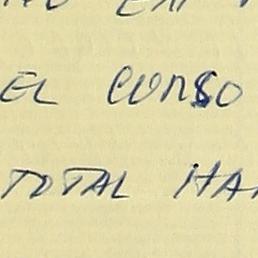 EL CURSO
TOTAL HA